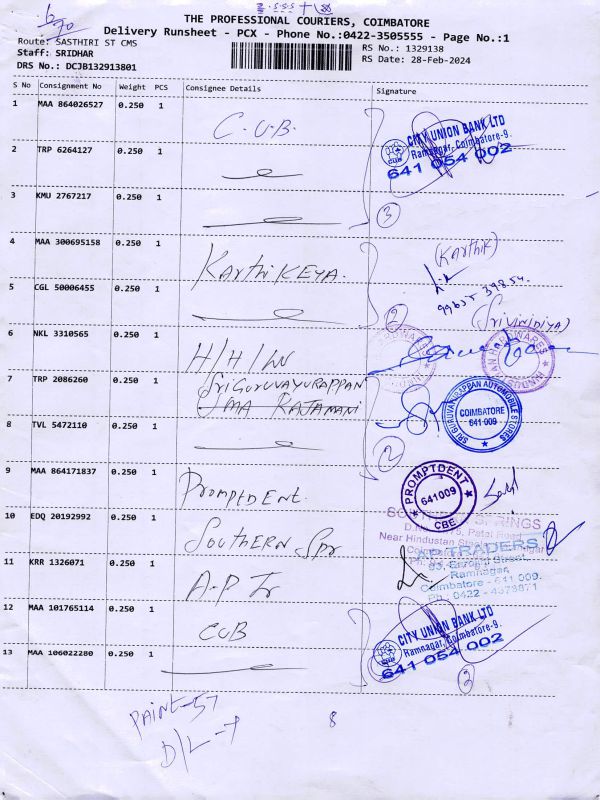 THE PROFESSIONAL COURIERS, COIMBATORE
Delivery Runsheet - PCX - Phone No.:0422-3505555 - Page No.:1
Route: SASTHIRI ST CMS
Staff: SRIDHAR
DRS No.: DCJB132913801
RS No.: 1329138
RS Date: 28-Feb-2024
S No Consignment No Weight PCS Consignee Details Signature
1 MAA 864026527 0.250 1 C.U.B.
CITY UNION BANK LTD
Ramnagar, Coimbatore-9.
641 054 002
2 TRP 6264127 0.250 1
3 KMU 2767217 0.250 1
3
4 MAA 300695158 0.250 1 KARTHIKEYA.
(Karthik)
5 CGL 50006455 0.250 1
2
(Srivinidiya)
6 NKL 3310565 0.250 1 H/H/W
HINDUSTAN HARDWARES
7 TRP 2086260 0.250 1 SRIGURUVAYURAPPAN
UMA RAJAMANI
SRI GURUVAYURAPPAN AUTOMOBILE STORES
COIMBATORE
641 009
8 TVL 5472110 0.250 1
2
9 MAA 864171837 0.250 1 PROMPTDENT.
PROMPTDENT
641009
CBE
10 EDQ 20192992 0.250 1 SOUTHERN Spr
Near Hindustan
11 KRR 1326071 0.250 1 A.P Tr
A.P. TRADERS
Ramnagar,
Coimbatore - 641 009.
Ph : 0422 - 4378871
12 MAA 101765114 0.250 1 CUB
CITY UNION BANK LTD
Ramnagar, Coimbatore-9.
641 054 002
13 MAA 106022280 0.250 1
2
PAINT-57
8
D/L-7